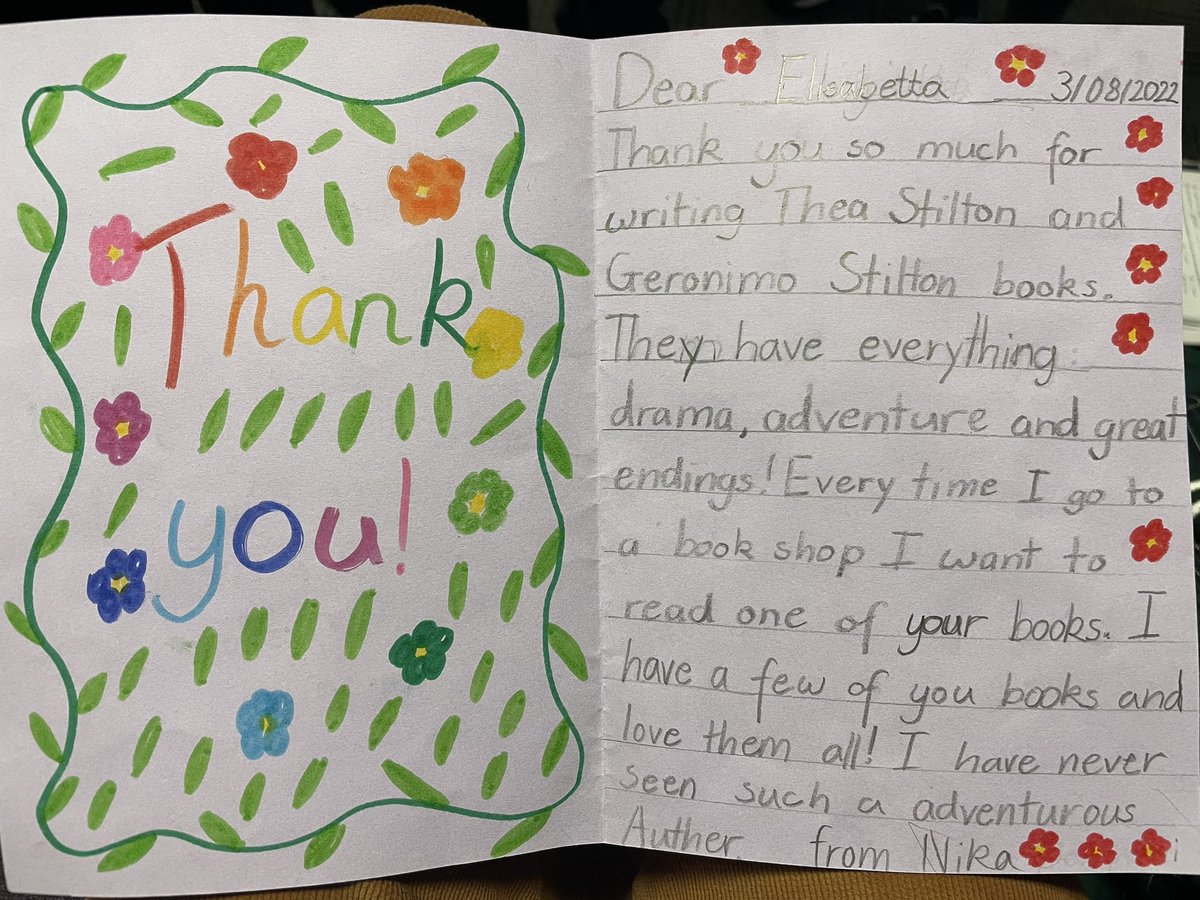 Thank
you!
Dear Elisabetta 3/08/2022
Thank you so much for
writing Thea Stilton and
Geronimo Stilton books.
They have everything
drama, adventure and great
endings! Every time I go to
a book shop I want to
read one of your books. I
have a few of you books and
love them all! I have never
seen such a adventurous
Auther. from Nika